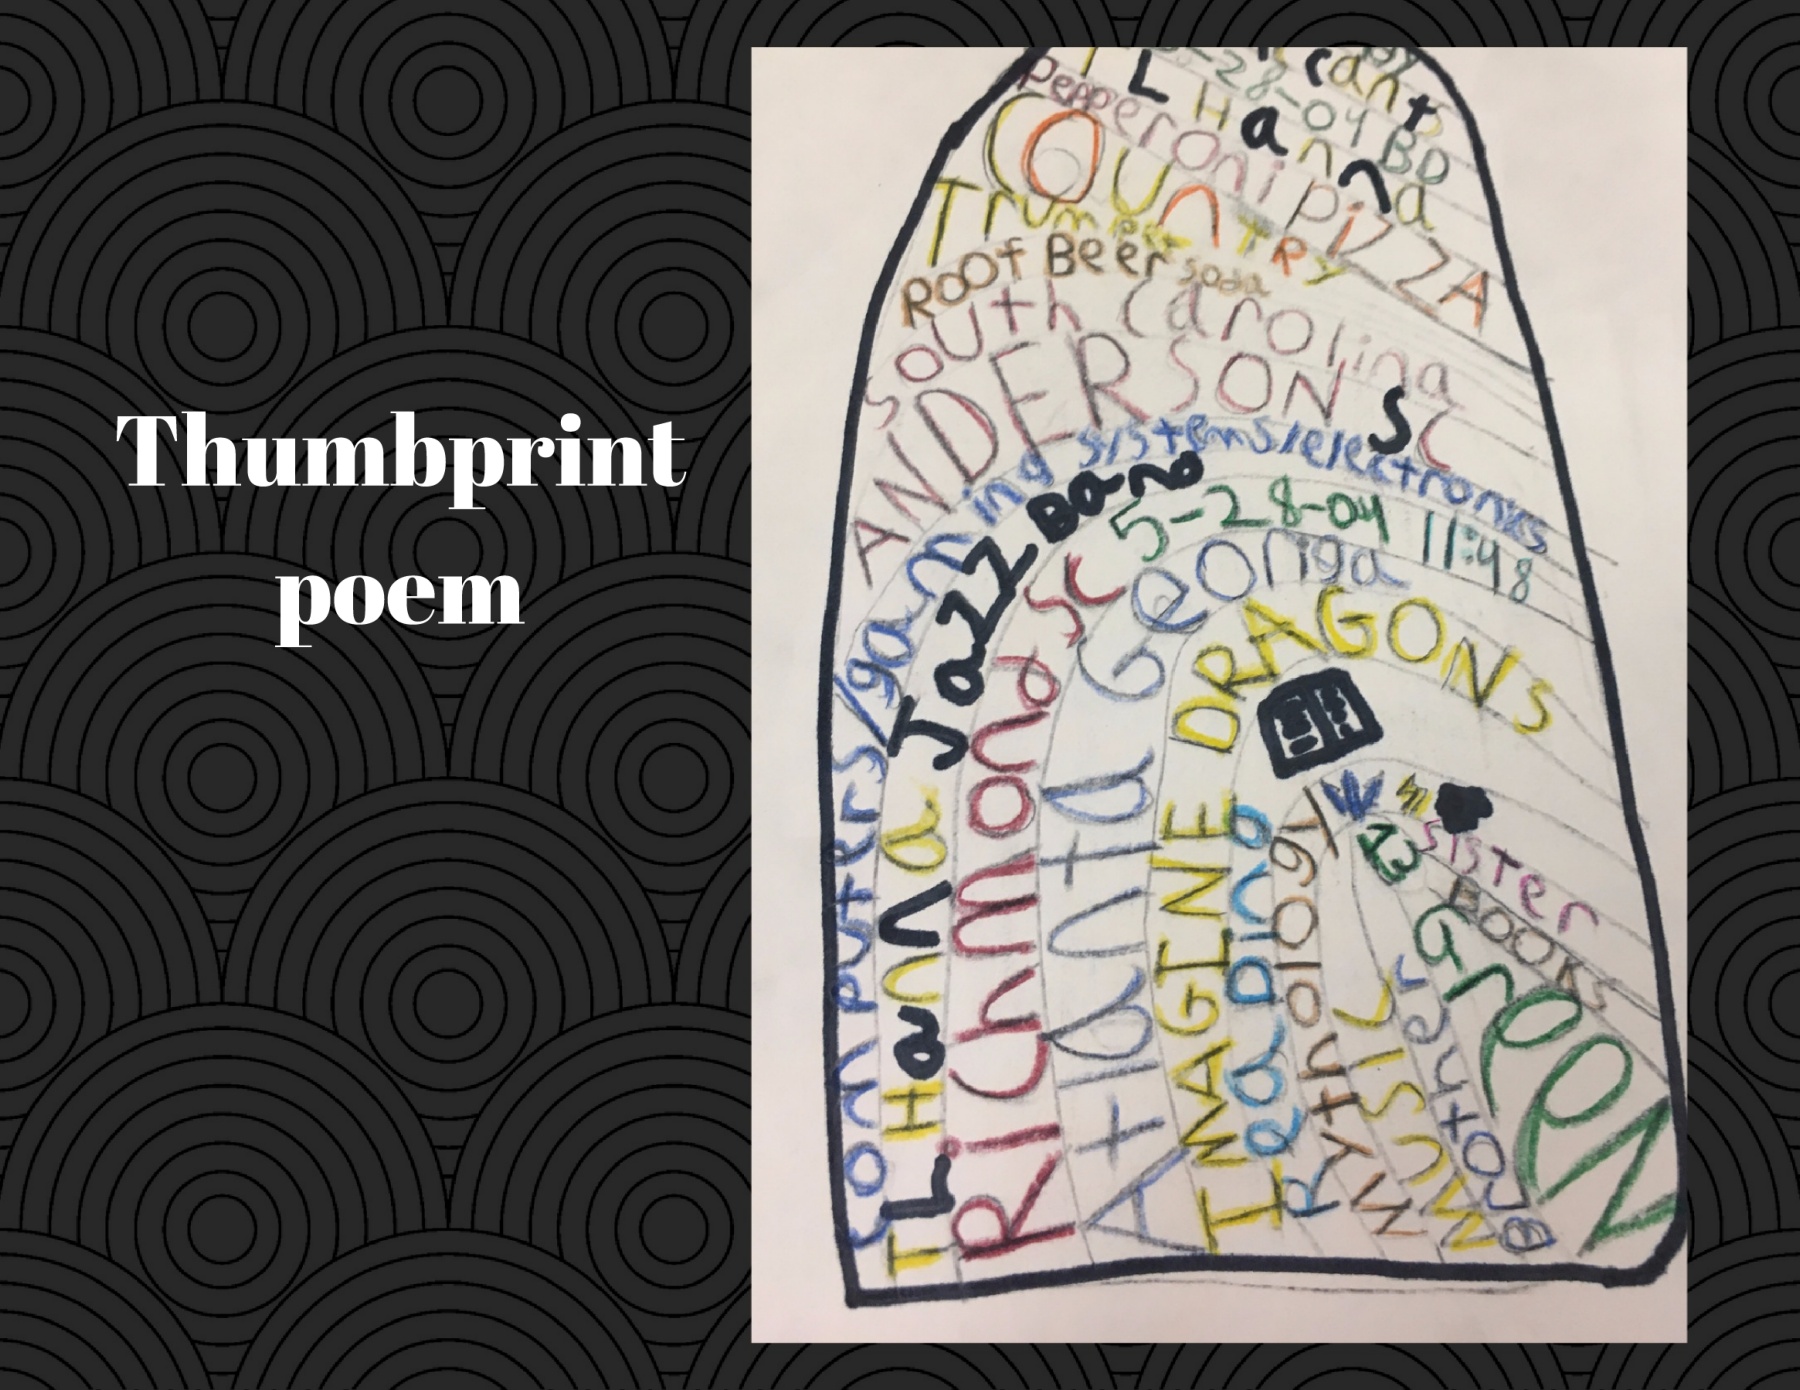 Thumbprint
poem
T L Hanna
5-28-04 BD
Pepperoni pizzA
COUnTRY
Trumpet
ROOt Beer soda
South Carolina
ANDERSON SC
computers/gaming systems/electronics
TL Hanna Jazz Band
Richmond SC
5-28-04 11:48
Atlanta Georiga
IMAGINE DRAGONS
ReaDing
Rythology
MUSIC
Brother
13
sister
BOOKS
GreeN